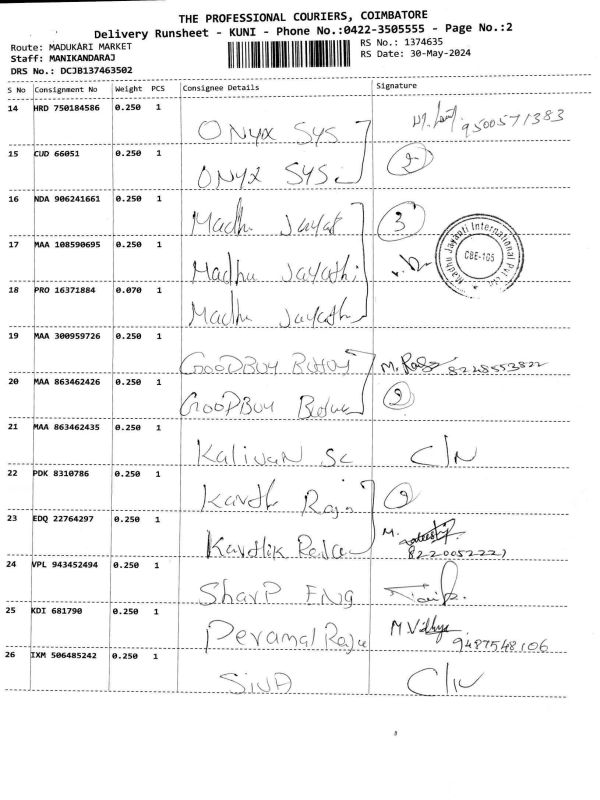 THE PROFESSIONAL COURIERS, COIMBATORE
Delivery Runsheet - KUNI - Phone No.:0422-3505555 - Page No.:2
Route: MADUKARI MARKET
RS No.: 1374635
Staff: MANIKANDARAJ
RS Date: 30-May-2024
DRS No.: DCJB137463502
S No Consignment No Weight PCS Consignee Details Signature
14 HRD 750184586 0.250 1 ONYX SYS 9500571383
15 CUD 66051 0.250 1 ONYX SYS 2
16 NDA 906241661 0.250 1 Madhu Jayat 3
17 MAA 108590695 0.250 1 Madhu Jayathi
Madhu Jayanti International Pvt Ltd
CBE-105
18 PRO 16371884 0.070 1 Madhu Jayathi
19 MAA 300959726 0.250 1 GOODBUY 8248553822
20 MAA 863462426 0.250 1 GOODBUY 2
21 MAA 863462435 0.250 1 Kalivan Sc C/N
22 PDK 8310786 0.250 1 Karthi Raja 2
23 EDQ 22764297 0.250 1 Karthik Raja M.
8220052221
24 VPL 943452494 0.250 1 Sharp ENG
25 KDI 681790 0.250 1 Perumal Raja M Vidhya
9487548106
26 IXM 506485242 0.250 1 SIVA C/N